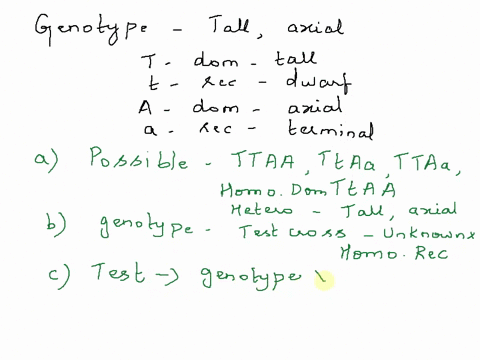 Genotype - Tall, axial
T - dom - tall
t - rec - dwarf
A - dom - axial
a - rec - terminal
a) Possible - TTAA, TtAa, TTAa,
Homo. Dom TtAA
Hetero - Tall, axial
b) genotype - Test cross - Unknown x
Homo. Rec
c) Test → genotype